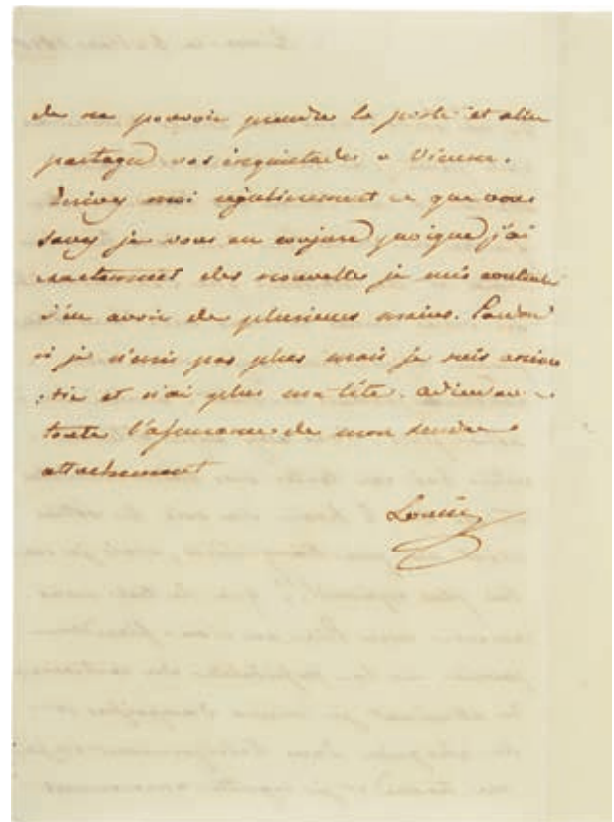 de ne pouvoir prendre la poste et aller
partager vos inquietudes a Vienne.
Ecrivez moi régulierement ce que vous
savez je vous en conjure quoique j'ai
exactement des nouvelles je suis contente
d'en avoir de plusieurs mains. Pardon
si je n'écris pas plus mais je suis anéan
tie et n'ai plus ma tête. adieu
toute l'assurance de mon tendre
attachement
Louise